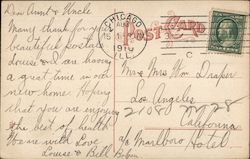 Dear Aunt & Uncle
Many thanks for your
beautiful postal
Louise & Ill are having
a great time in our
new home. Hoping
that you are enjoying
the best of health
We are with Love
Louise & Bill
CHICAGO
AUG
1910
ILL.
POST CARD
Mr & Mrs Wm Draper
Los Angeles
California
c/o Marlboro Hotel